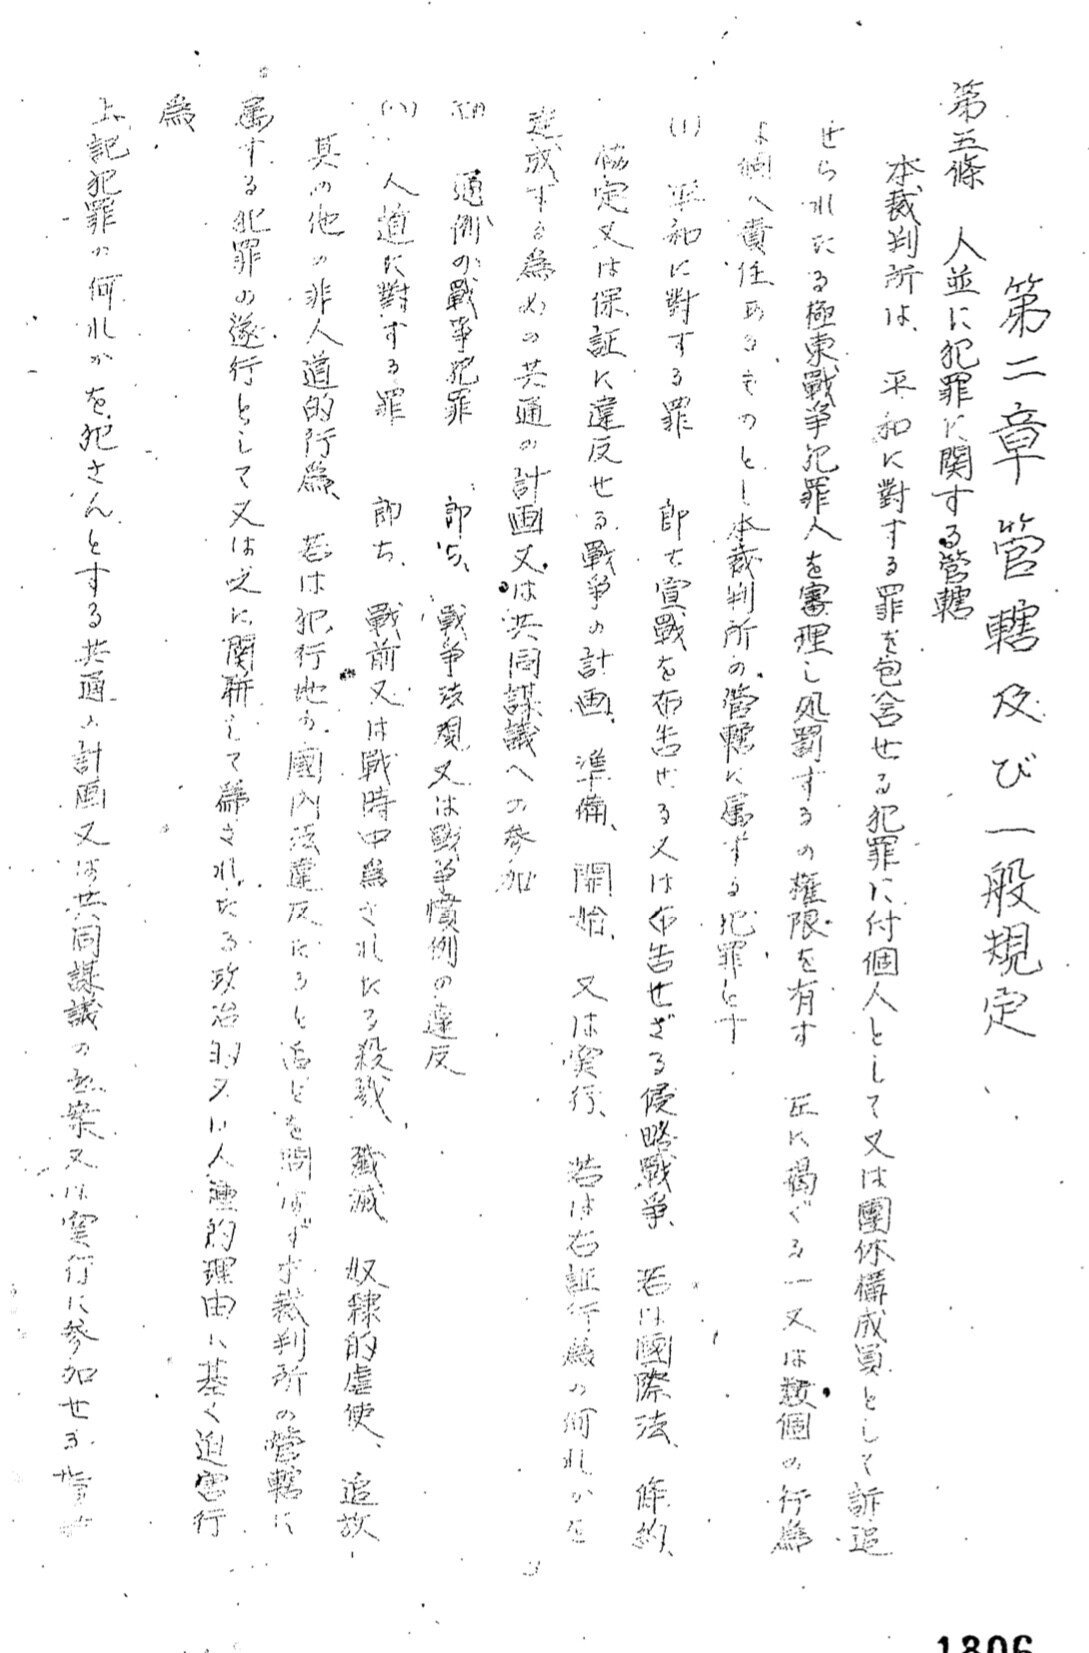 第二章 管轄及び一般規定
第五條 人並に犯罪に関する管轄
本裁判所は、平和に對する罪を包含せる犯罪に付個人として又は團体構成員として訴追
せられたる極東戰争犯罪人を審理し処罰するの権限を有す 左に掲ぐる一又は数個の行為
は個人責任あるものとし本裁判所の管轄に属する犯罪とす
(イ) 平和に對する罪 即ち宣戰を布告せる又は布告せざる侵略戰争、若は國際法、條約、
協定又は保証に違反せる戰争の計画、準備、開始、又は実行、若は右証行為の何れかを
達成する為めの共通の計画又は共同謀議への参加
(ロ) 通例の戰争犯罪 即ち、戰争法規又は戰争慣例の違反
(ハ) 人道に對する罪 即ち、戰前又は戰時中為されたる殺戮、殲滅、奴隷的虐使、追放
其の他の非人道的行為、若は犯行地の國内法違反たると否とを問はず本裁判所の管轄に
属する犯罪の遂行として又は之に関聯して為されたる政治的又は人種的理由に基く迫害行
為
上記犯罪の何れかを犯さんとする共通の計画又は共同謀議の立案又は実行に参加せる
1806